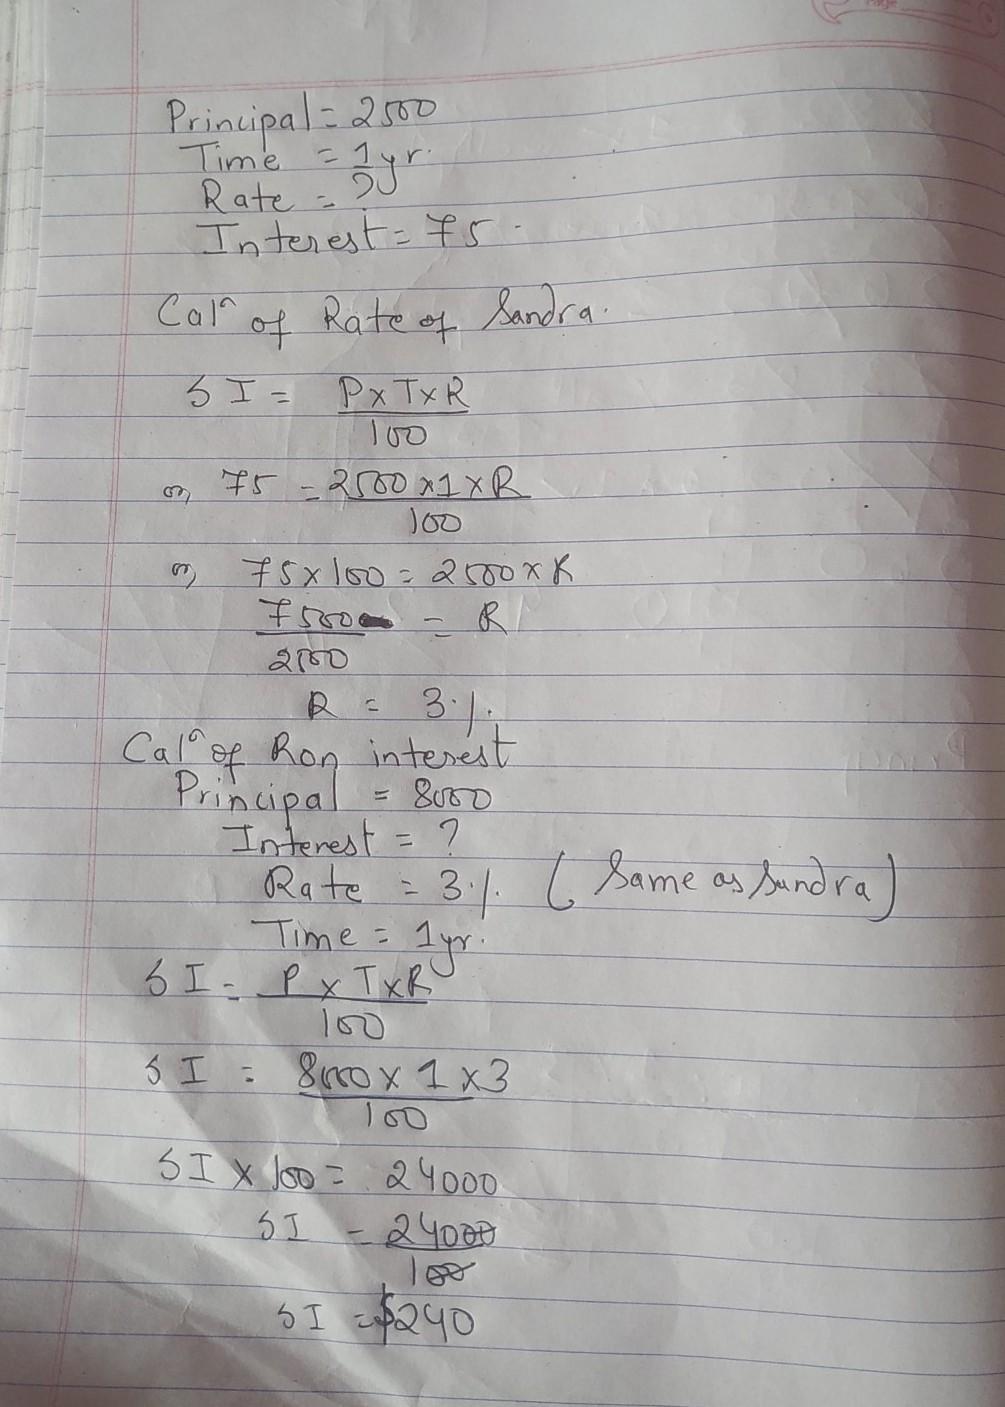 Page
Principal = 2500
Time = 1yr.
Rate = ?
Interest = 75
Calⁿ of Rate of Sandra.
SI = P x T x R
100
or, 75 = 2500 x 1 x R
100
or, 75 x 100 = 2500 x R
7500 = R
2500
R = 3%
Calⁿ of Ron interest
Principal = 8000
Interest = ?
Rate = 3% (Same as Sandra)
Time = 1yr.
SI = P x T x R
100
SI = 8000 x 1 x 3
100
SI x 100 = 24000
SI = 24000
100
SI = $240